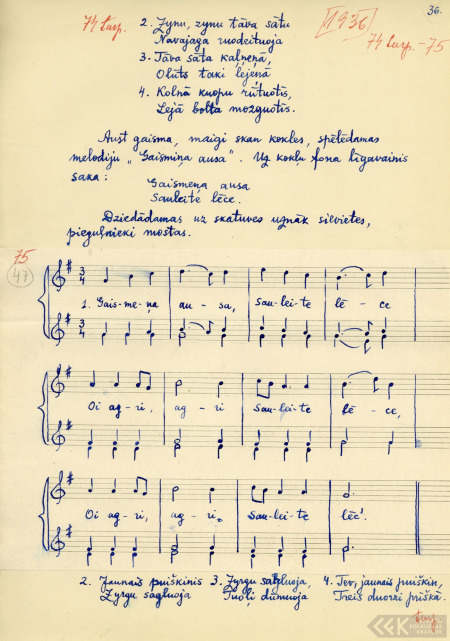 36.
74 turp.
[1936]
74 turp. - 75
2. Zynu, zynu tāva sātu
Navajaga vuodeituoja
3. Tāva sāta kalneņā,
Olūts taki lejeņā
4. Kolnā kuopu rūtuotīs.
Lejā bolta mozguotīs.
Aust gaisma, maigi skan kokles, spēlēdamas
melodiju „Gaismiņa ausa". Uz kokļu fona līgavainis
saka:
Gaismeņa ausa
Sauleite lēce.
Dziedādamas uz skatuves uznāk silvietes,
pieguļnieki mostas.
75
47
1. Gais-me-ņa au-sa, sau-lei-te lē-ce
Oi ag-ri, ag-ri sau-lei-te lē-ce,
Oi ag-ri, ag-ri, sau-lei-te lēc'.
2. Jaunais puiškinis
Zyrgu sagluoja
3. Zyrgu sagluoja,
Tuoļi dūmuoja
4. Tev, jaunais puiškin,
Treis duorzi prīškā.
turp.